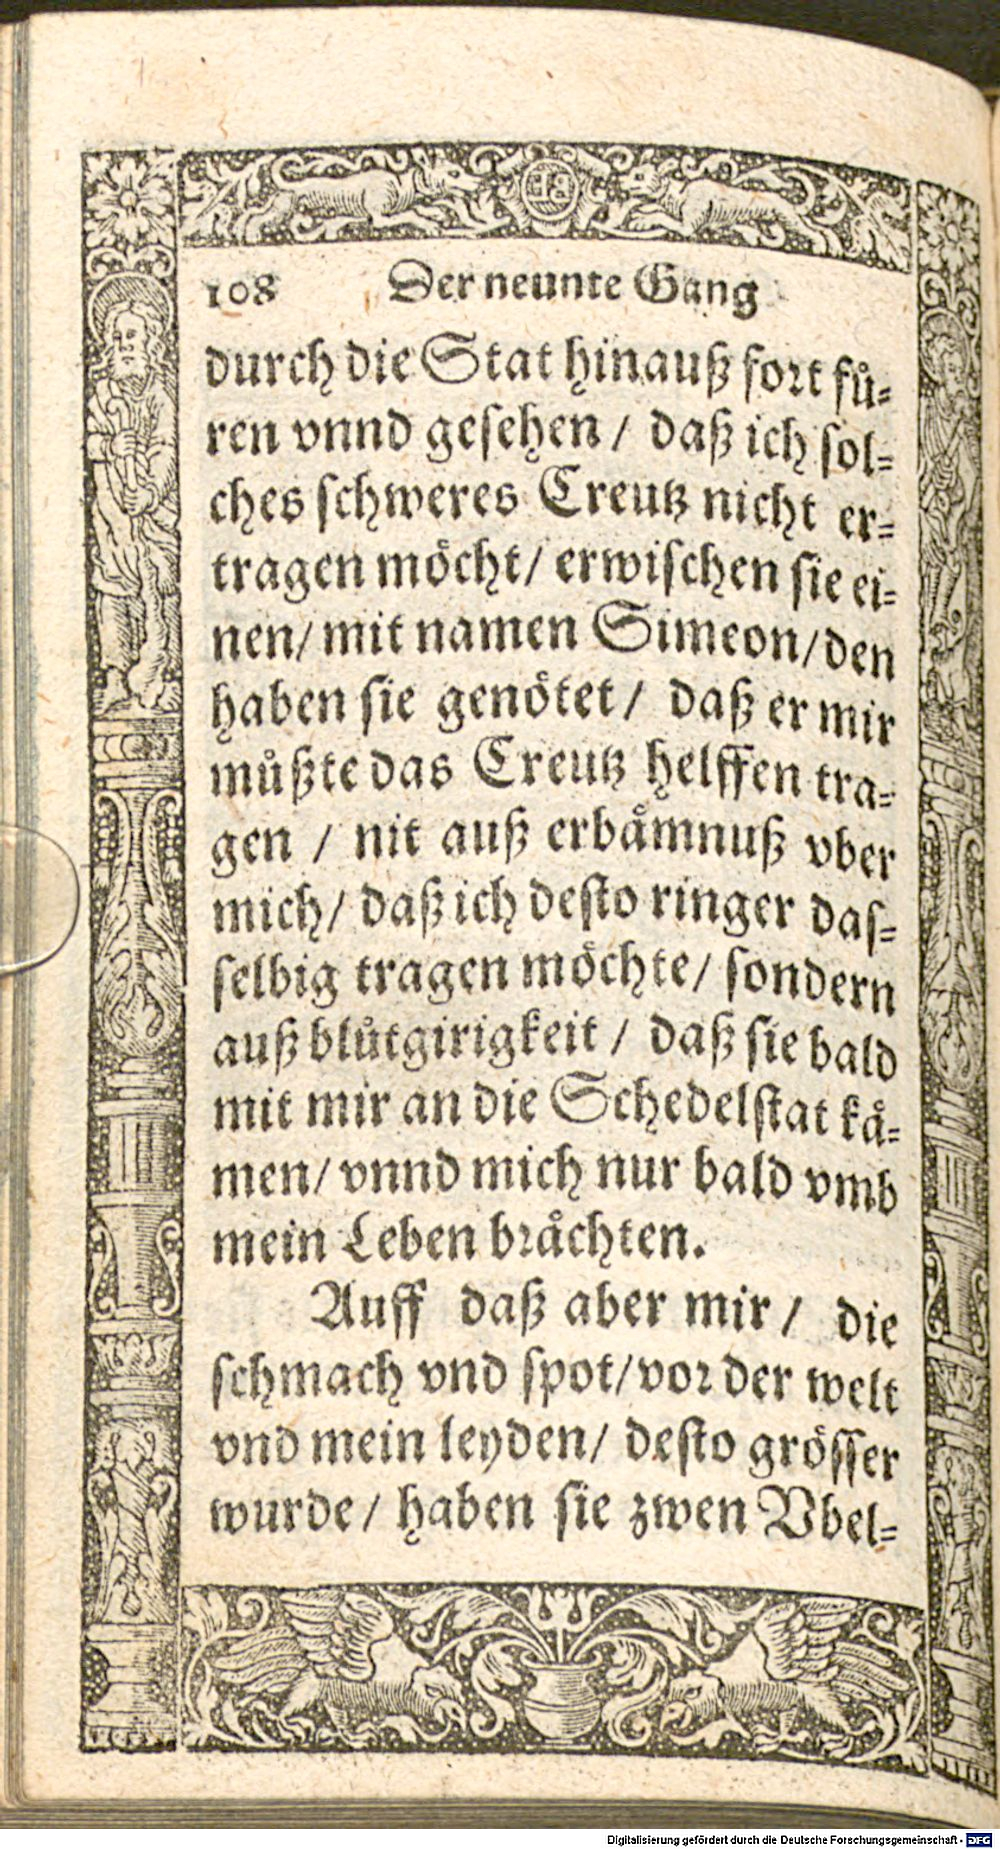 108 Der neunte Gang
durch die Stat hinauß fort fuͤ⸗
ren vnnd gesehen / daß ich sol⸗
ches schweres Creutz nicht er⸗
tragen moͤcht / erwischen sie ei⸗
nen / mit namen Simeon / den
haben sie genoͤtet / daß er mir
muͤßte das Creutz helffen tra⸗
gen / nit auß erbaͤmnuß vber
mich / daß ich desto ringer das⸗
selbig tragen moͤchte / sondern
auß bluͤtgirigkeit / daß sie bald
mit mir an die Schedelstat kaͤ⸗
men / vnnd mich nur bald vmb
mein Leben braͤchten.
Auff daß aber mir / die
schmach vnd spot / vor der welt
vnd mein leyden / desto groͤsser
wurde / haben sie zwen Vbel⸗
Digitalisierung gefördert durch die Deutsche Forschungsgemeinschaft - DFG